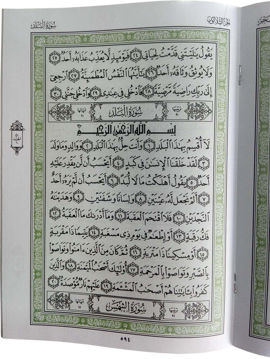 سُورَةُ البَلَد
الجزء الثلاثون
يَقُولُ يَٰلَيْتَنِي قَدَّمْتُ لِحَيَاتِي ٢٤ فَيَوْمَئِذٍ لَّا يُعَذِّبُ عَذَابَهُۥٓ أَحَدٌ ٢٥
وَلَا يُوثِقُ وَثَاقَهُۥٓ أَحَدٌ ٢٦ يَٰٓأَيَّتُهَا ٱلنَّفْسُ ٱلْمُطْمَئِنَّةُ ٢٧ ٱرْجِعِيٓ
إِلَىٰ رَبِّكِ رَاضِيَةً مَّرْضِيَّةً ٢٨ فَٱدْخُلِي فِي عِبَٰدِي ٢٩ وَٱدْخُلِي جَنَّتِي ٣٠
سُورَةُ البَلَد
بِسْمِ ٱللَّهِ ٱلرَّحْمَٰنِ ٱلرَّحِيمِ
لَآ أُقْسِمُ بِهَٰذَا ٱلْبَلَدِ ١ وَأَنتَ حِلٌّۢ بِهَٰذَا ٱلْبَلَدِ ٢ وَوَالِدٍ وَمَا وَلَدَ
٣ لَقَدْ خَلَقْنَا ٱلْإِنسَٰنَ فِي كَبَدٍ ٤ أَيَحْسَبُ أَن لَّن يَقْدِرَ عَلَيْهِ
أَحَدٌ ٥ يَقُولُ أَهْلَكْتُ مَالًا لُّبَدًا ٦ أَيَحْسَبُ أَن لَّمْ يَرَهُۥٓ أَحَدٌ
٧ أَلَمْ نَجْعَل لَّهُۥ عَيْنَيْنِ ٨ وَلِسَانًا وَشَفَتَيْنِ ٩ وَهَدَيْنَٰهُ
ٱلنَّجْدَيْنِ ١٠ فَلَا ٱقْتَحَمَ ٱلْعَقَبَةَ ١١ وَمَآ أَدْرَىٰكَ مَا ٱلْعَقَبَةُ ١٢
فَكُّ رَقَبَةٍ ١٣ أَوْ إِطْعَٰمٌ فِي يَوْمٍ ذِي مَسْغَبَةٍ ١٤ يَتِيمًا ذَا مَقْرَبَةٍ
١٥ أَوْ مِسْكِينًا ذَا مَتْرَبَةٍ ١٦ ثُمَّ كَانَ مِنَ ٱلَّذِينَ ءَامَنُوا۟ وَتَوَاصَوْا۟
بِٱلصَّبْرِ وَتَوَاصَوْا۟ بِٱلْمَرْحَمَةِ ١٧ أُو۟لَٰٓئِكَ أَصْحَٰبُ ٱلْمَيْمَنَةِ ١٨ وَٱلَّذِينَ
كَفَرُوا۟ بِـَٔايَٰتِنَا هُمْ أَصْحَٰبُ ٱلْمَشْـَٔمَةِ ١٩ عَلَيْهِمْ نَارٌ مُّؤْصَدَةٌۢ ٢٠
سُورَةُ الشَّمْسِ
٥٩٤